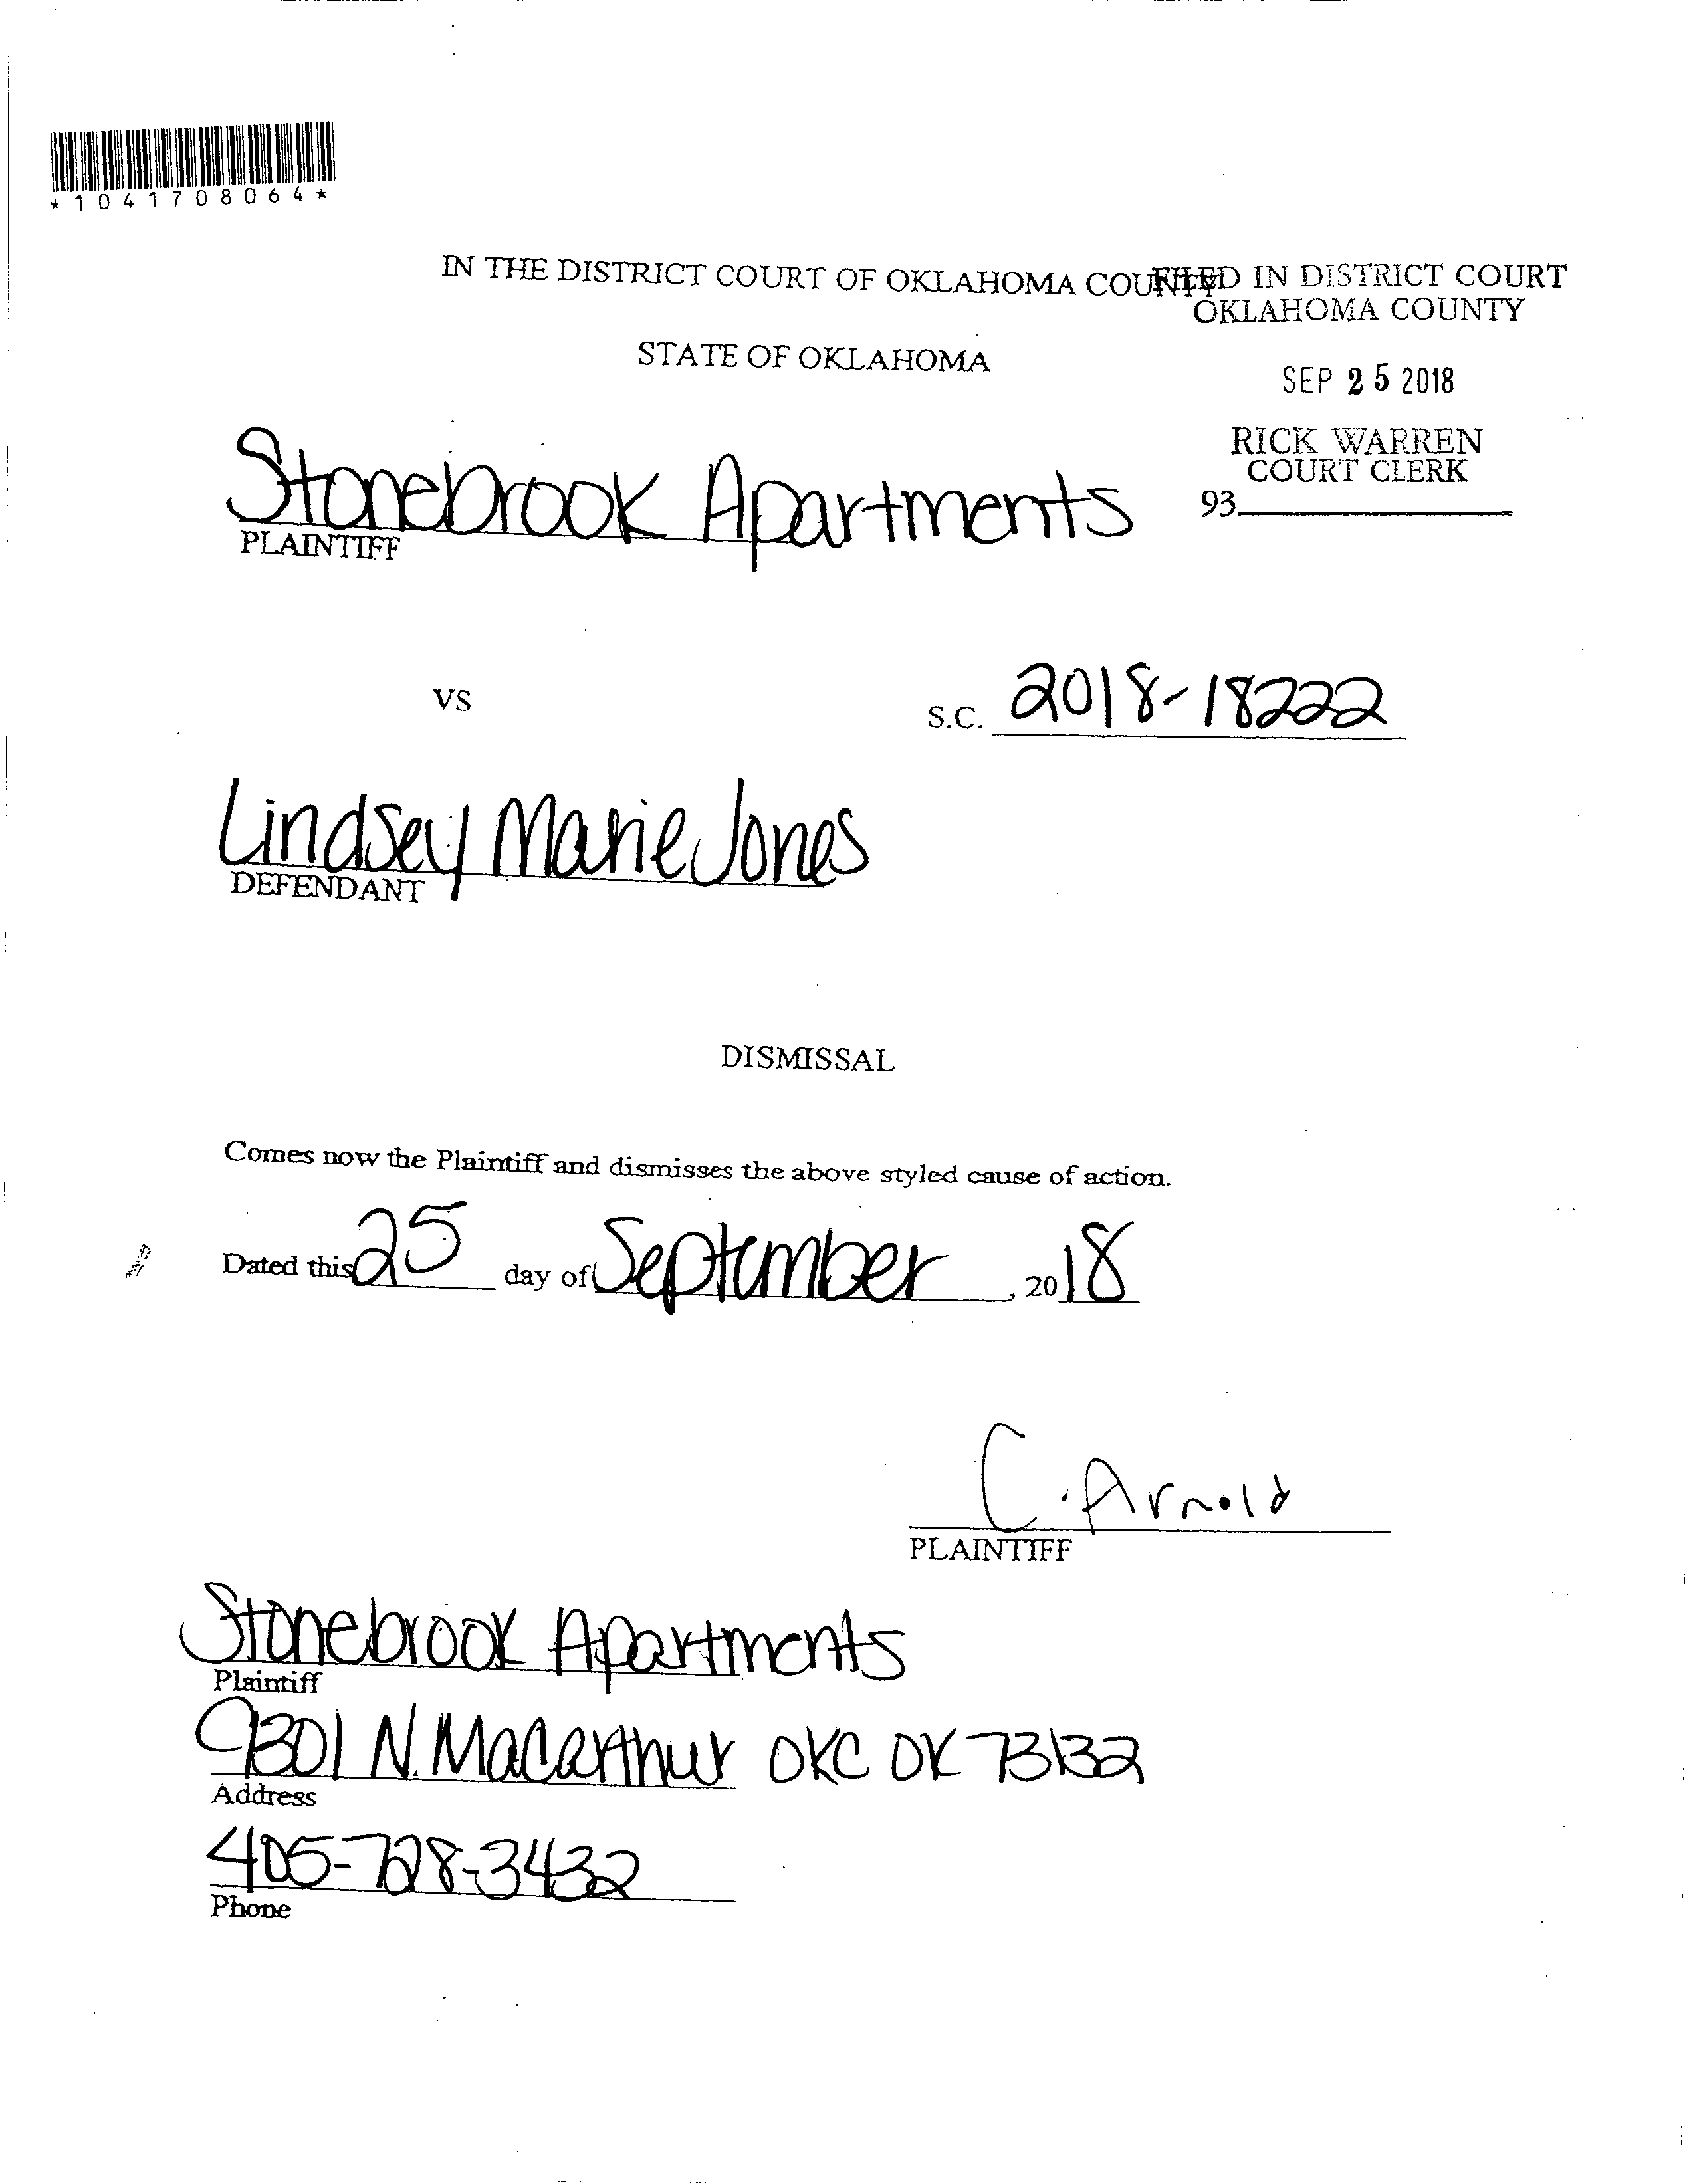 *1041708064*
IN THE DISTRICT COURT OF OKLAHOMA COUNTY
FILED IN DISTRICT COURT
OKLAHOMA COUNTY
STATE OF OKLAHOMA
SEP 25 2018
RICK WARREN
COURT CLERK
93
Stonebrook Apartments
PLAINTIFF
VS
S.C. 2018-18222
Lindsey Marie Jones
DEFENDANT
DISMISSAL
Comes now the Plaintiff and dismisses the above styled cause of action.
Dated this 25 day of September, 2018
C. Arnold
PLAINTIFF
Stonebrook Apartments
Plaintiff
9301 N. Macarthur OKC OK 73132
Address
405-728-3432
Phone